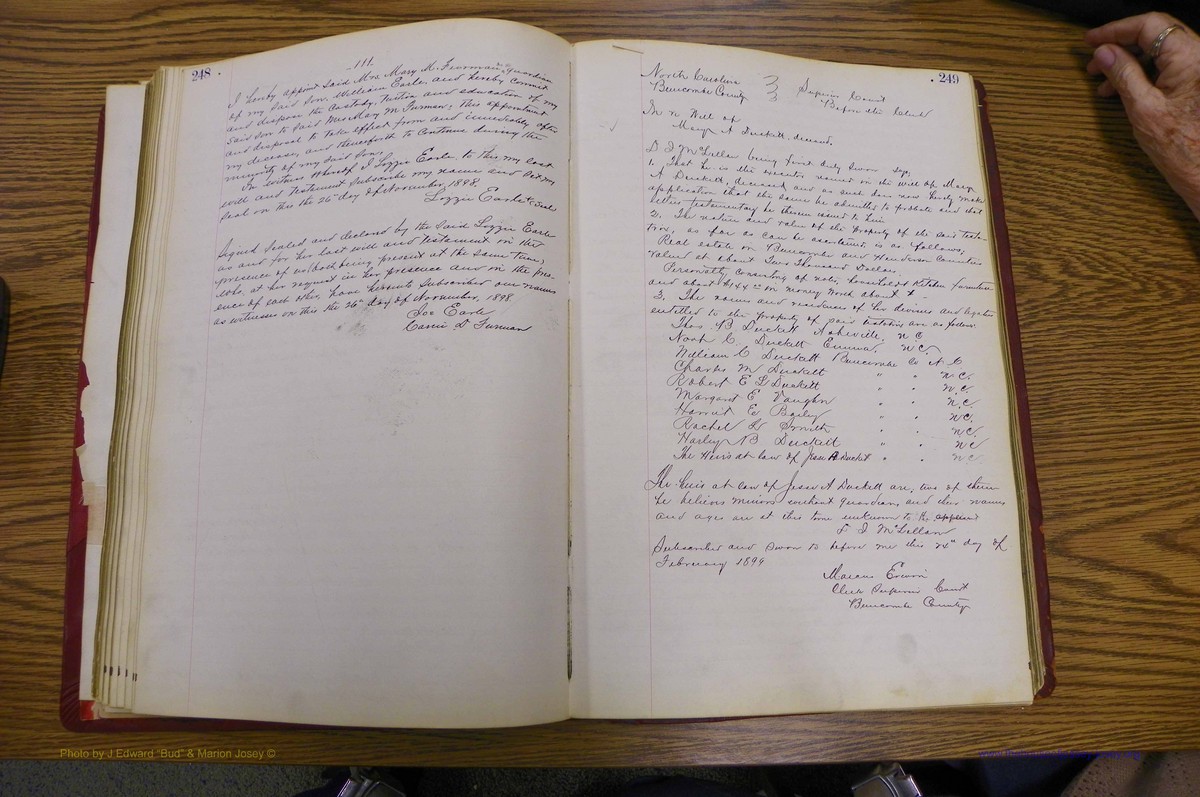 248.
III.
I hereby appoint said Mrs. Mary M. Furman, guardian
of my said Son, William Earle, and hereby commit
and dispose the custody, tuition and education of my
said son to said Mrs Mary M. Furman; this appointment
and disposal to take effect from and immediately after
my decease, and thenceforth to continue during the
minority of my said son.
In witness whereof I Lizzie Earle, to this my last
will and testament subscribe my name and set my
seal on this the 26th day of November, 1898.
Lizzie Earle Seal
Signed sealed and declared by the said Lizzie Earle
as and for her last will and testament in the
presence of us (both being present at the same time)
who, at her request in her presence and in the pres-
ence of each other, have hereunto subscribed our names
as witnesses on this the 26th day of November, 1898
Joe Earle
Carrie D Furman
249
North Carolina
Buncombe County
Superior Court
Before the Clerk
In re Will of
Mary A Duckett, deceased.
D I McLellan being first duly sworn says,
1. That he is the executor named in the will of Mary
A Duckett, deceased, and as such does now hereby make
application that the same be admitted to probate and that
letters testamentary be thereon issued to him
2. The nature and value of the property of the said testa-
trix, as far as can be ascertained, is as follows,
Real estate in Buncombe and Henderson Counties
valued at about Two Thousand Dollars.
Personalty consisting of notes, household & Kitchen furniture
and about in money worth about
3. The names and residences of her devisees and legatees
entitled to the property of said testatrix are as follows
Thos. B Duckett Asheville, N C
Noah C. Duckett Emma, N C.
William C Duckett Buncombe Co N C
Charles M Duckett " " N C.
Robert E L Duckett " " N.C.
Margaret E Vaughn " " N.C.
Harriet E Baily " " N.C.
Rachel L Smith " " N C
Harley B Duckett " " N C
The Heirs at law of Jesse A Duckett " " N C
The heirs at law of Jesse A Duckett are, two of them
he believes minors without guardian, and their names
and ages are at this time unknown to
D I McLellan
Subscribed and sworn to before me this 24th day of
February 1899
Marcus Erwin
Clerk Superior Court
Buncombe County
Photo by J Edward "Bud" & Marion Josey ©